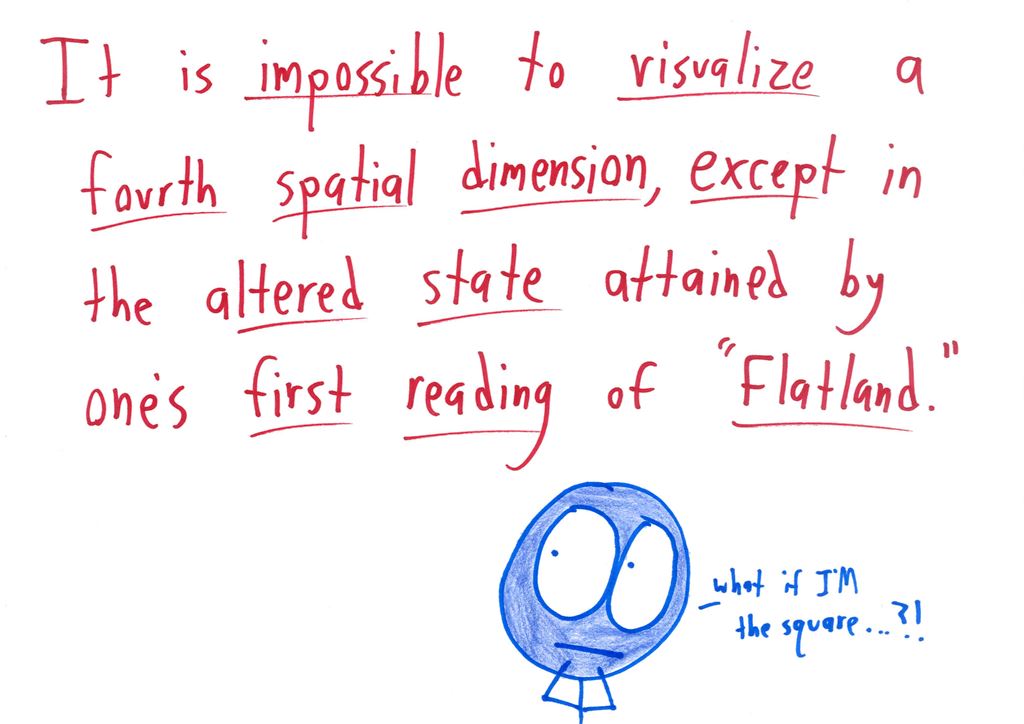 It is impossible to visualize a
fourth spatial dimension, except in
the altered state attained by
one's first reading of "Flatland."
what if I'M
the square...?!